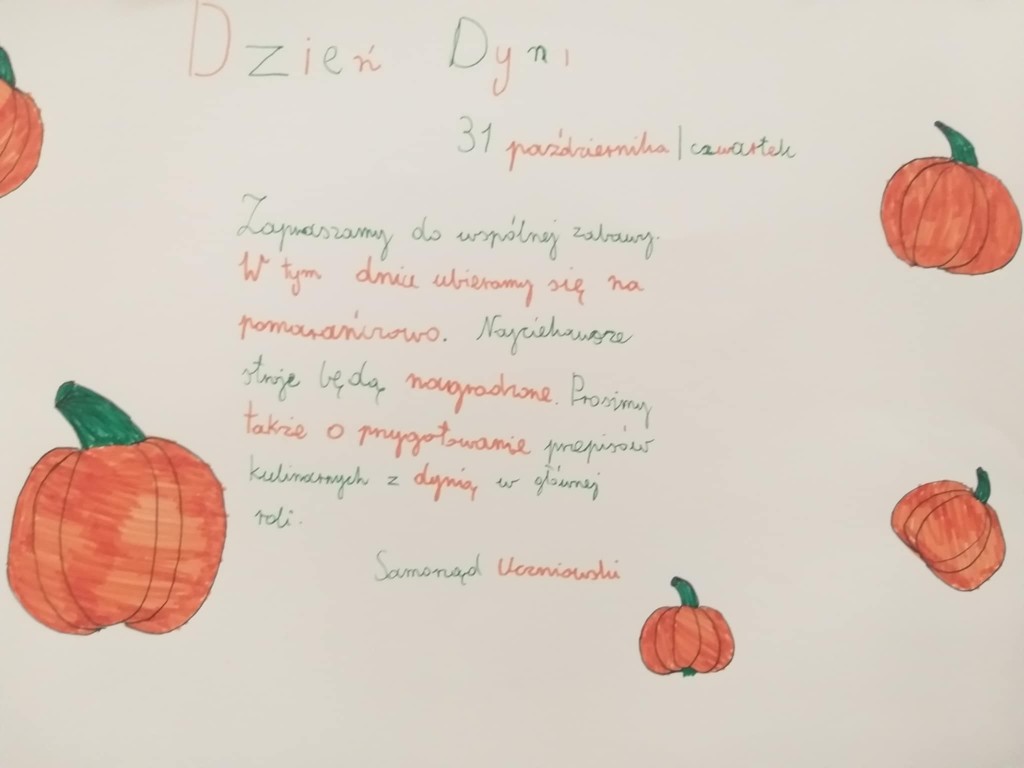 Dzień Dyni
31 października | czwartek
Zapraszamy do wspólnej zabawy.
W tym dniu ubieramy się na
pomarańczowo. Najciekawsze
stroje będą nagradzane. Prosimy
także o przygotowanie przepisów
kulinarnych z dynią w głównej
roli.
Samorząd Uczniowski